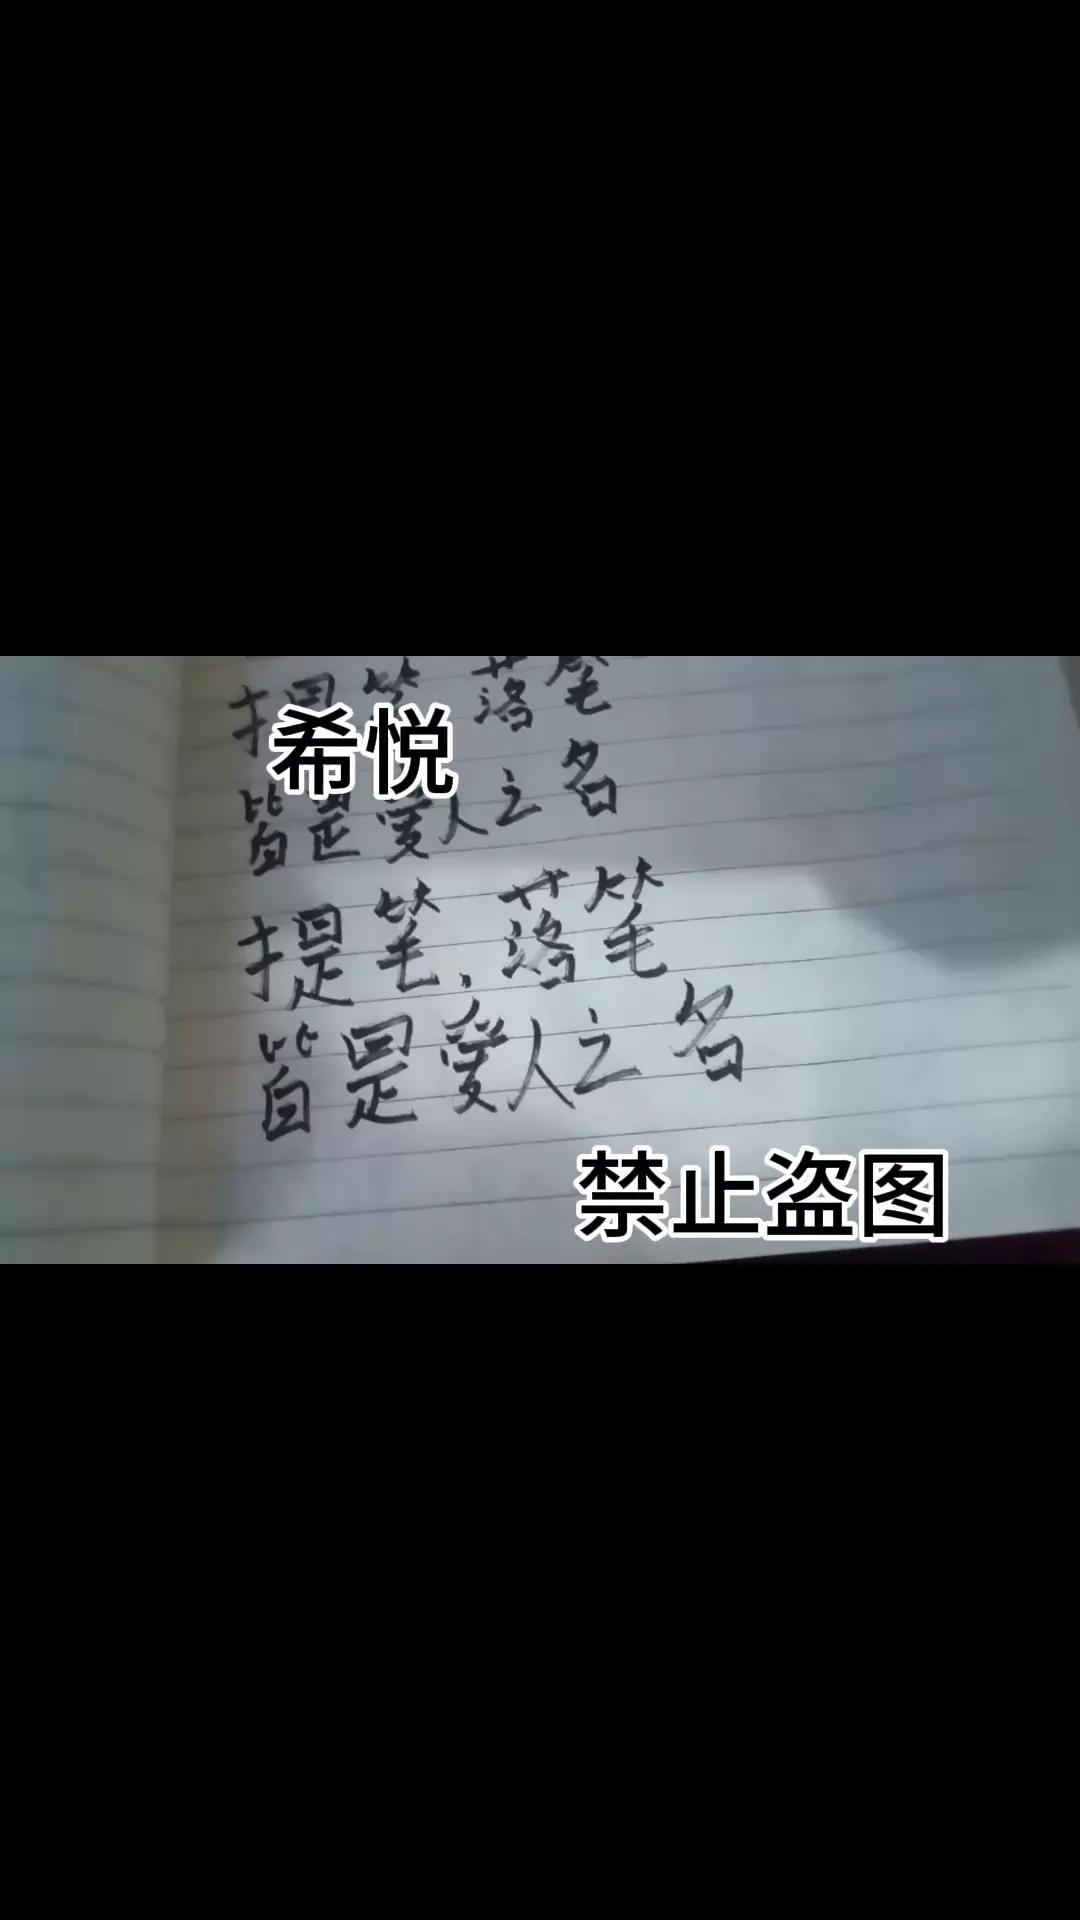 提笔 落笔
希悦
皆是爱人之名
提笔,落笔
皆是爱人之名
禁止盗图